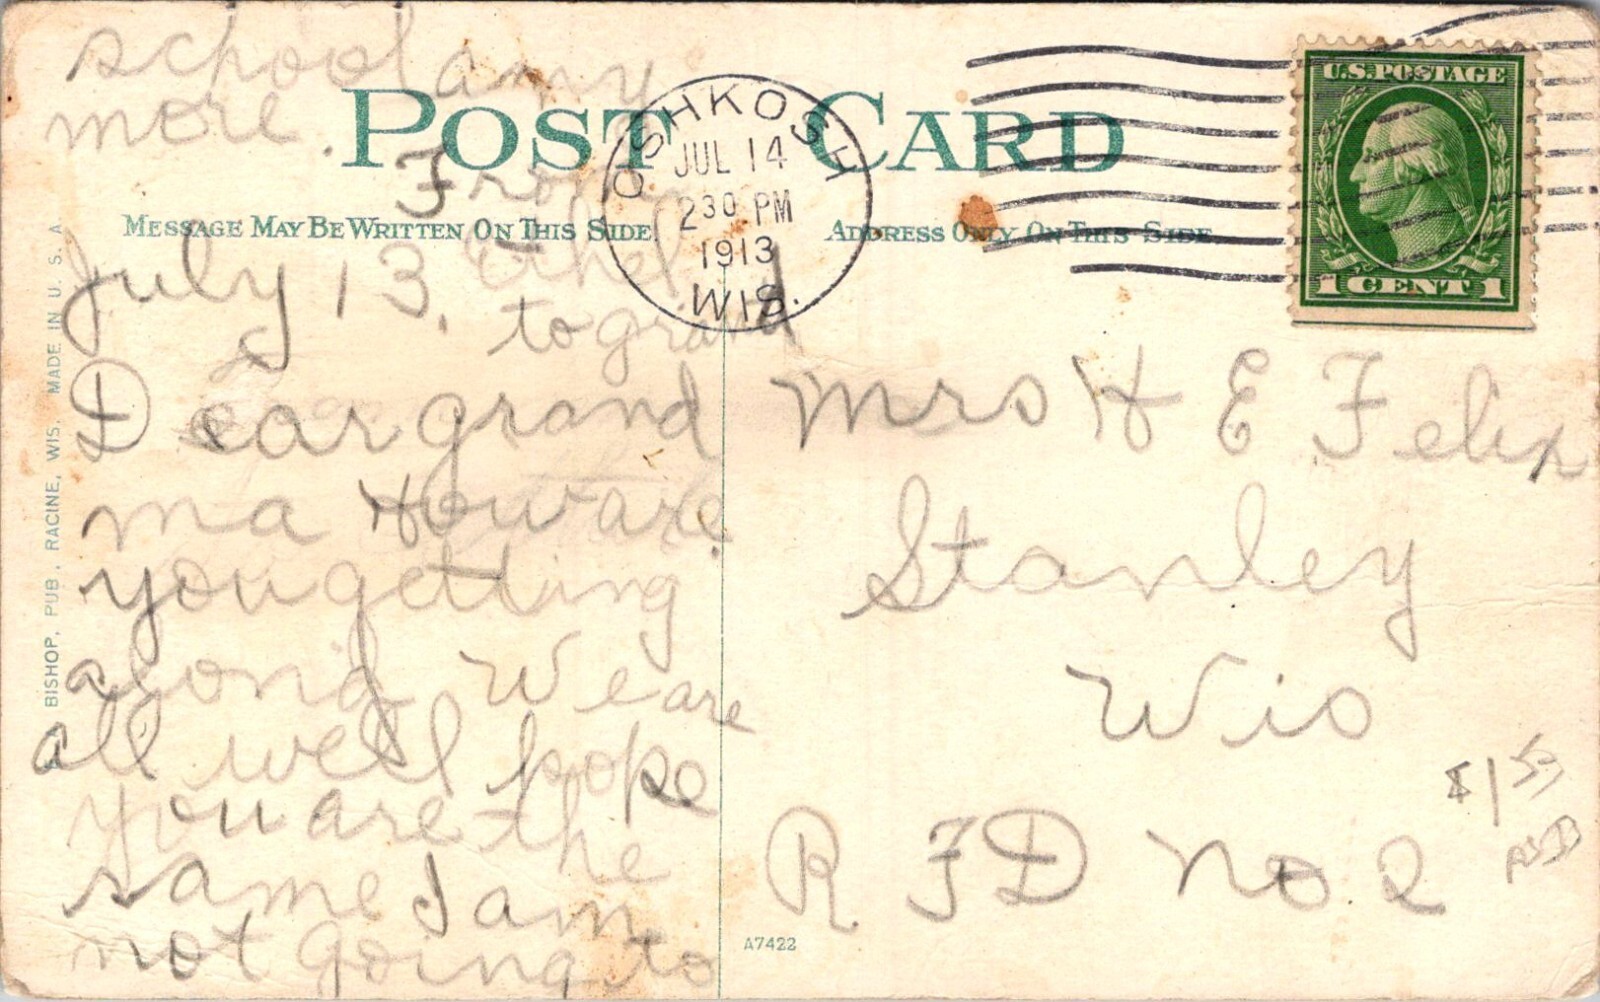 school any
more.
From
Ethel
to grand
POST CARD
MESSAGE MAY BE WRITTEN ON THIS SIDE.
ADDRESS ONLY ON THIS SIDE
OSHKOSH
JUL 14
230 PM
1913
WIS.
U.S. POSTAGE
1 CENT 1
July 13,
Dear grand
ma How are
you getting
along We are
all well hope
you are the
same I am
not going to
Mrs H E Felix
Stanley
Wis
R F D No 2
$1
A7422
BISHOP, PUB., RACINE, WIS. MADE IN U. S. A.